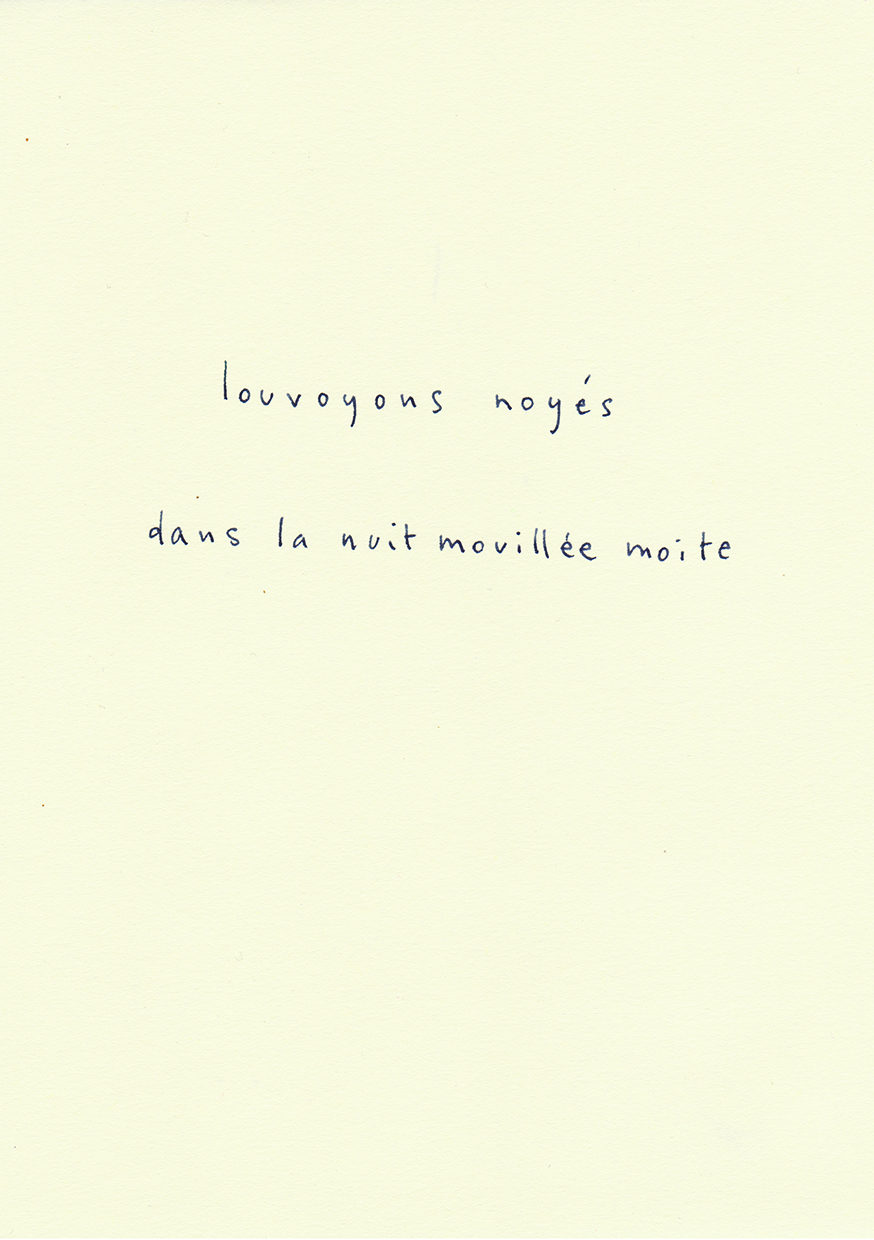 louvoyons noyés
dans la nuit mouillée moite